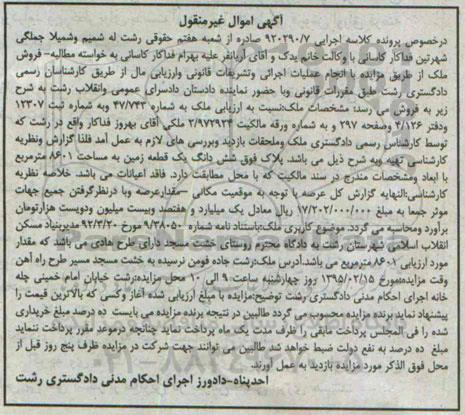 آگهی اموال غیرمنقول
درخصوص پرونده کلاسه اجرایی ۹۲۰۲۹۰/۷ صادره از شعبه هفتم حقوقی رشت له شمیم وشمیلا جملگی
شهرتین فداکار کاسانی با وکالت خانم یدک و آقای آریانفر علیه بهرام فداکار کاسانی به خواسته مطالبه- فروش
ملک از طریق مزایده با انجام عملیات اجرائی وتشریفات قانونی وارزیابی مال از طریق کارشناسان رسمی
دادگستری رشت طبق مقررات قانونی وبا حضور نماینده دادستان دادسرای عمومی وانقلاب رشت به شرح
زیر به فروش می رسد: مشخصات ملک:نسبت به ارزیابی ملک به شماره ۴۷/۷۴۳ وبه شماره ثبت ۱۲۳۰۷
ودفتر ۴/۱۲۶ وصفحه ۲۹۷ و به شماره ورقه مالکیت ۲/۹۷۲۹۳۴ ملکی آقای بهروز فداکار واقع در رشت که
توسط کارشناس رسمی دادگستری ملک وملحقات بازدید وبررسی های لازم به عمل آمد فلذا گزارش ونظریه
کارشناسی تهیه وبه شرح ذیل می باشد. پلاک فوق شش دانگ یک قطعه زمین به مساحت ۸۶۰۱ مترمربع
با ابعاد ومشخصات مندرج در سند مالکیت که با محل مطابقت دارد. فاقد اعیانات می باشد. خلاصه نظریه
کارشناسی:النهایه گزارش کل عرصه با توجه به موقعیت مکانی -مقدارعرصه وبا درنظرگرفتن جمیع جهات
موثر جمعا به مبلغ ۱۷/۲۰۲/۰۰۰/۰۰۰ ریال معادل یک میلیارد و هفتصد وبیست میلیون ودویست هزارتومان
برآورد ومحاسبه می گردد. موضوع کاربری ملک:باستناد نامه شماره ۹/۳۸۰۵۰ مورخ ۹۲/۳/۲۰ مدیربنیاد مسکن
انقلاب اسلامی شهرستان رشت به دادگاه محترم روستای خشت مسجد دارای طرح هادی می باشد که مقدار
مورد ارزیابی ۸۶۰۱مترمربع می باشد.آدرس ملک:رشت جاده فومن نرسیده به خشت مسجد مسیر طرح راه آهن
وقت مزایده:مورخ ۱۳۹۵/۰۲/۱۵ روز چهارشنبه ساعت ۹ الی ۱۰ محل مزایده:رشت خیابان امام خمینی چله
خانه اجرای احکام مدنی دادگستری رشت توضیح:مزایده با مبلغ ارزیابی شده آغاز وکسی که بالاترین قیمت را
پیشنهاد نماید برنده مزایده محسوب می گردد طالبین در نتیجه برنده مزایده می بایست ده درصد مبلغ خریداری
شده را فی المجلس پرداخت مابقی را ظرف مدت یک ماه پرداخت نماید چنانچه درموعد مقرر پرداخت ننماید
مبلغ ده درصد به نفع دولت ضبط خواهد شد طالبین می توانند جهت شرکت در مزایده ظرف پنج روز قبل از
محل فوق الذکر مورد مزایده بازدید به عمل آورند.
احدپناه-دادورز اجرای احکام مدنی دادگستری رشت